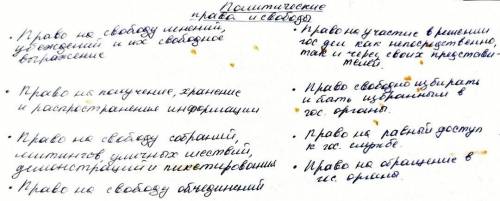 Политические
права и свободы
• Право на свободу мнений,
убеждений и их свободное
выражение
• Право на получение, хранение
и распространение информации
• Право на свободу собраний,
митингов, уличных шествий,
демонстраций и пикетирования
• Право на свободу объединений
• Право на участие в решении
гос дел как непосредственно,
так и через своих представи-
телей.
• Право свободно избирать
и быть избранным в
гос. органы.
• Право на равный доступ
к гос. службе.
• Право на обращение в
гос. органы.